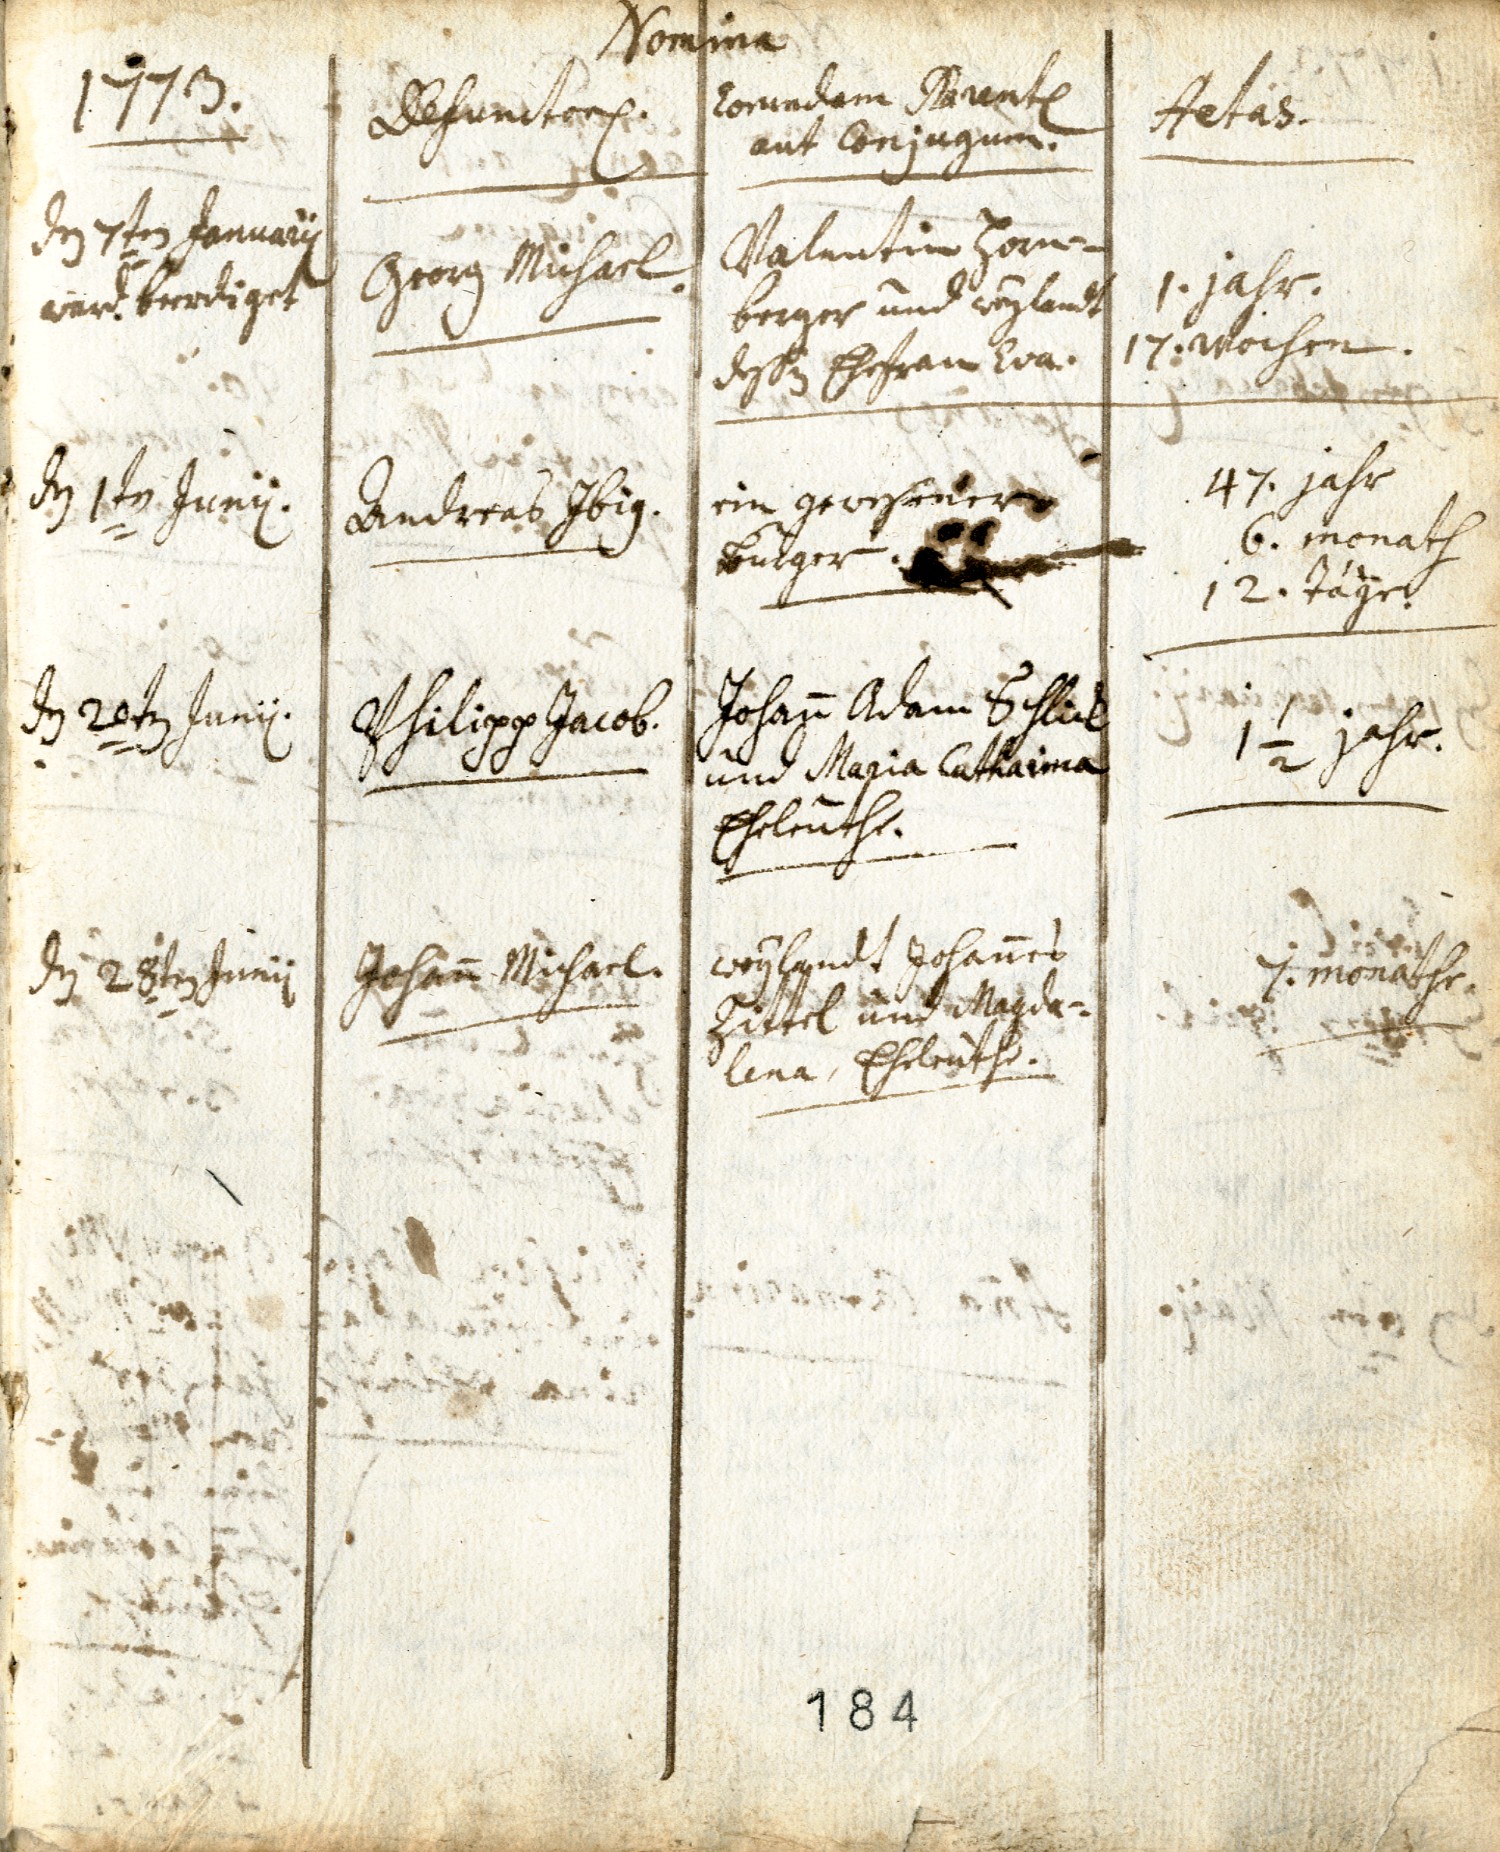 Nomina
1773.
Defunctor.
Eorundem Parent.
aut Conjugum.
Aetas.
den 7ten Januarij
ward beerdiget
Georg Michael.
Valentin Horn-
berger und weylandt
dessen Ehefrau Eva.
1. jahr.
17. Wochen.
den 1ten Junij.
Andreas Ibig.
ein gewesener
burger.
47. jahr
6. monath
12. Täge.
den 20ten Junij.
Philipp Jacob.
Johann Adam
und Maria Catharina
Eheleuthe.
1 1/2 jahr.
den 28ten Junij
Johann Michael.
weylandt Johannes
Zittel und Magda-
lena, Eheleuthe.
7. monathe.
184